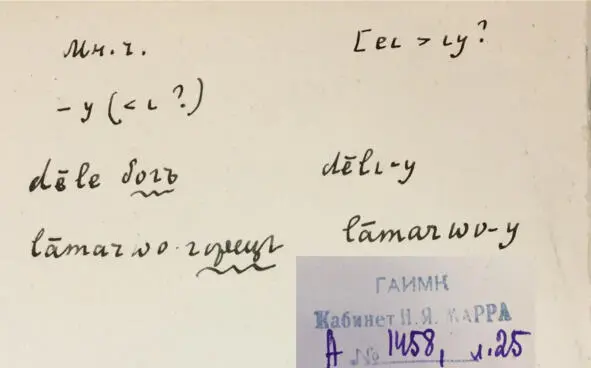 Мн. ч. [eι > ιy?
– y (< ι ?)
dēle богъ dēlι-y
lāmarwo горецъ lāmarwo-y
ГАИМК
Кабинет Н.Я. МАРРА
А № 1458, л. 25